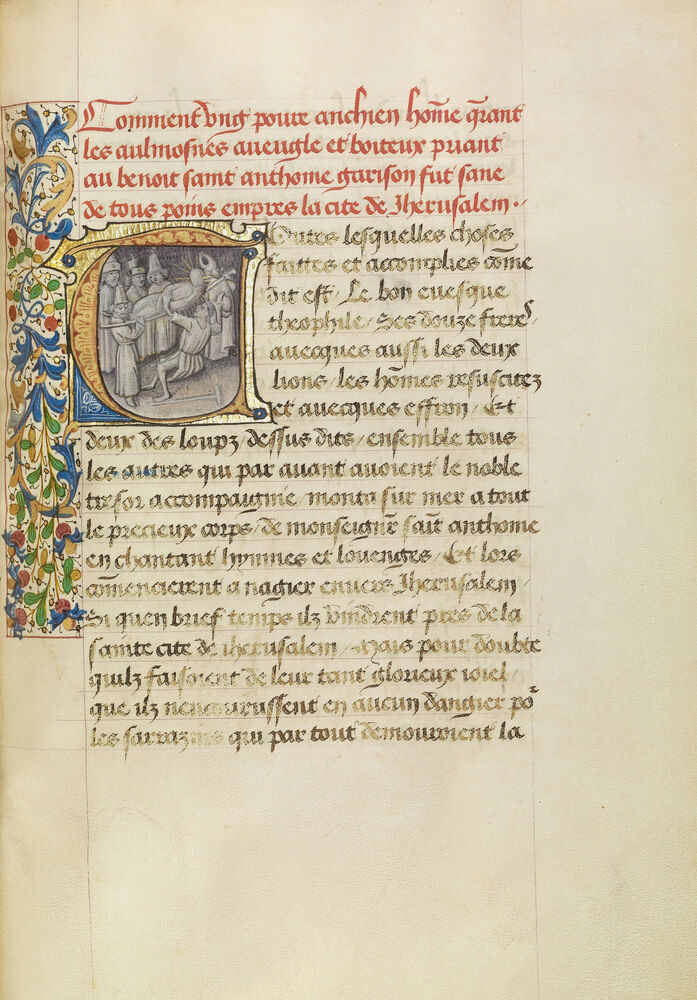 Comment vng poure anchien hom̄e q̄rant
les aulmosnes aueugle et boiteux priant
au benoit saint anthoine garison fut sane
de tous poins empres la cite de Jherusalem
Outres lesquelles choses
faittes et accomplies com̄e
dit est / Le bon euesque
theophile / Ses douze freres
auecques aussi les deux
lions / les hom̄es resuscitez
et auecques effron / Et
deux des loupz / dessus dits / ensemble tous
les autres qui par auant auoient le noble
tresor accompaignie / monta sur mer a tout
le precieux corps / de monseign̄r sait̄ anthoine
en chantant hymnes et louenges / Et lors
com̄encierent a nagier enuers Jherusalem /
Si quen brief temps ilz vindrent pres de la
sainte cite de iherusalem / Mais pour doubte
quilz faisoient de leur tant glorieux ioiel /
que ilz nencourussent en aucun dangier po᷑
les sarrazins qui par tout demouroient la